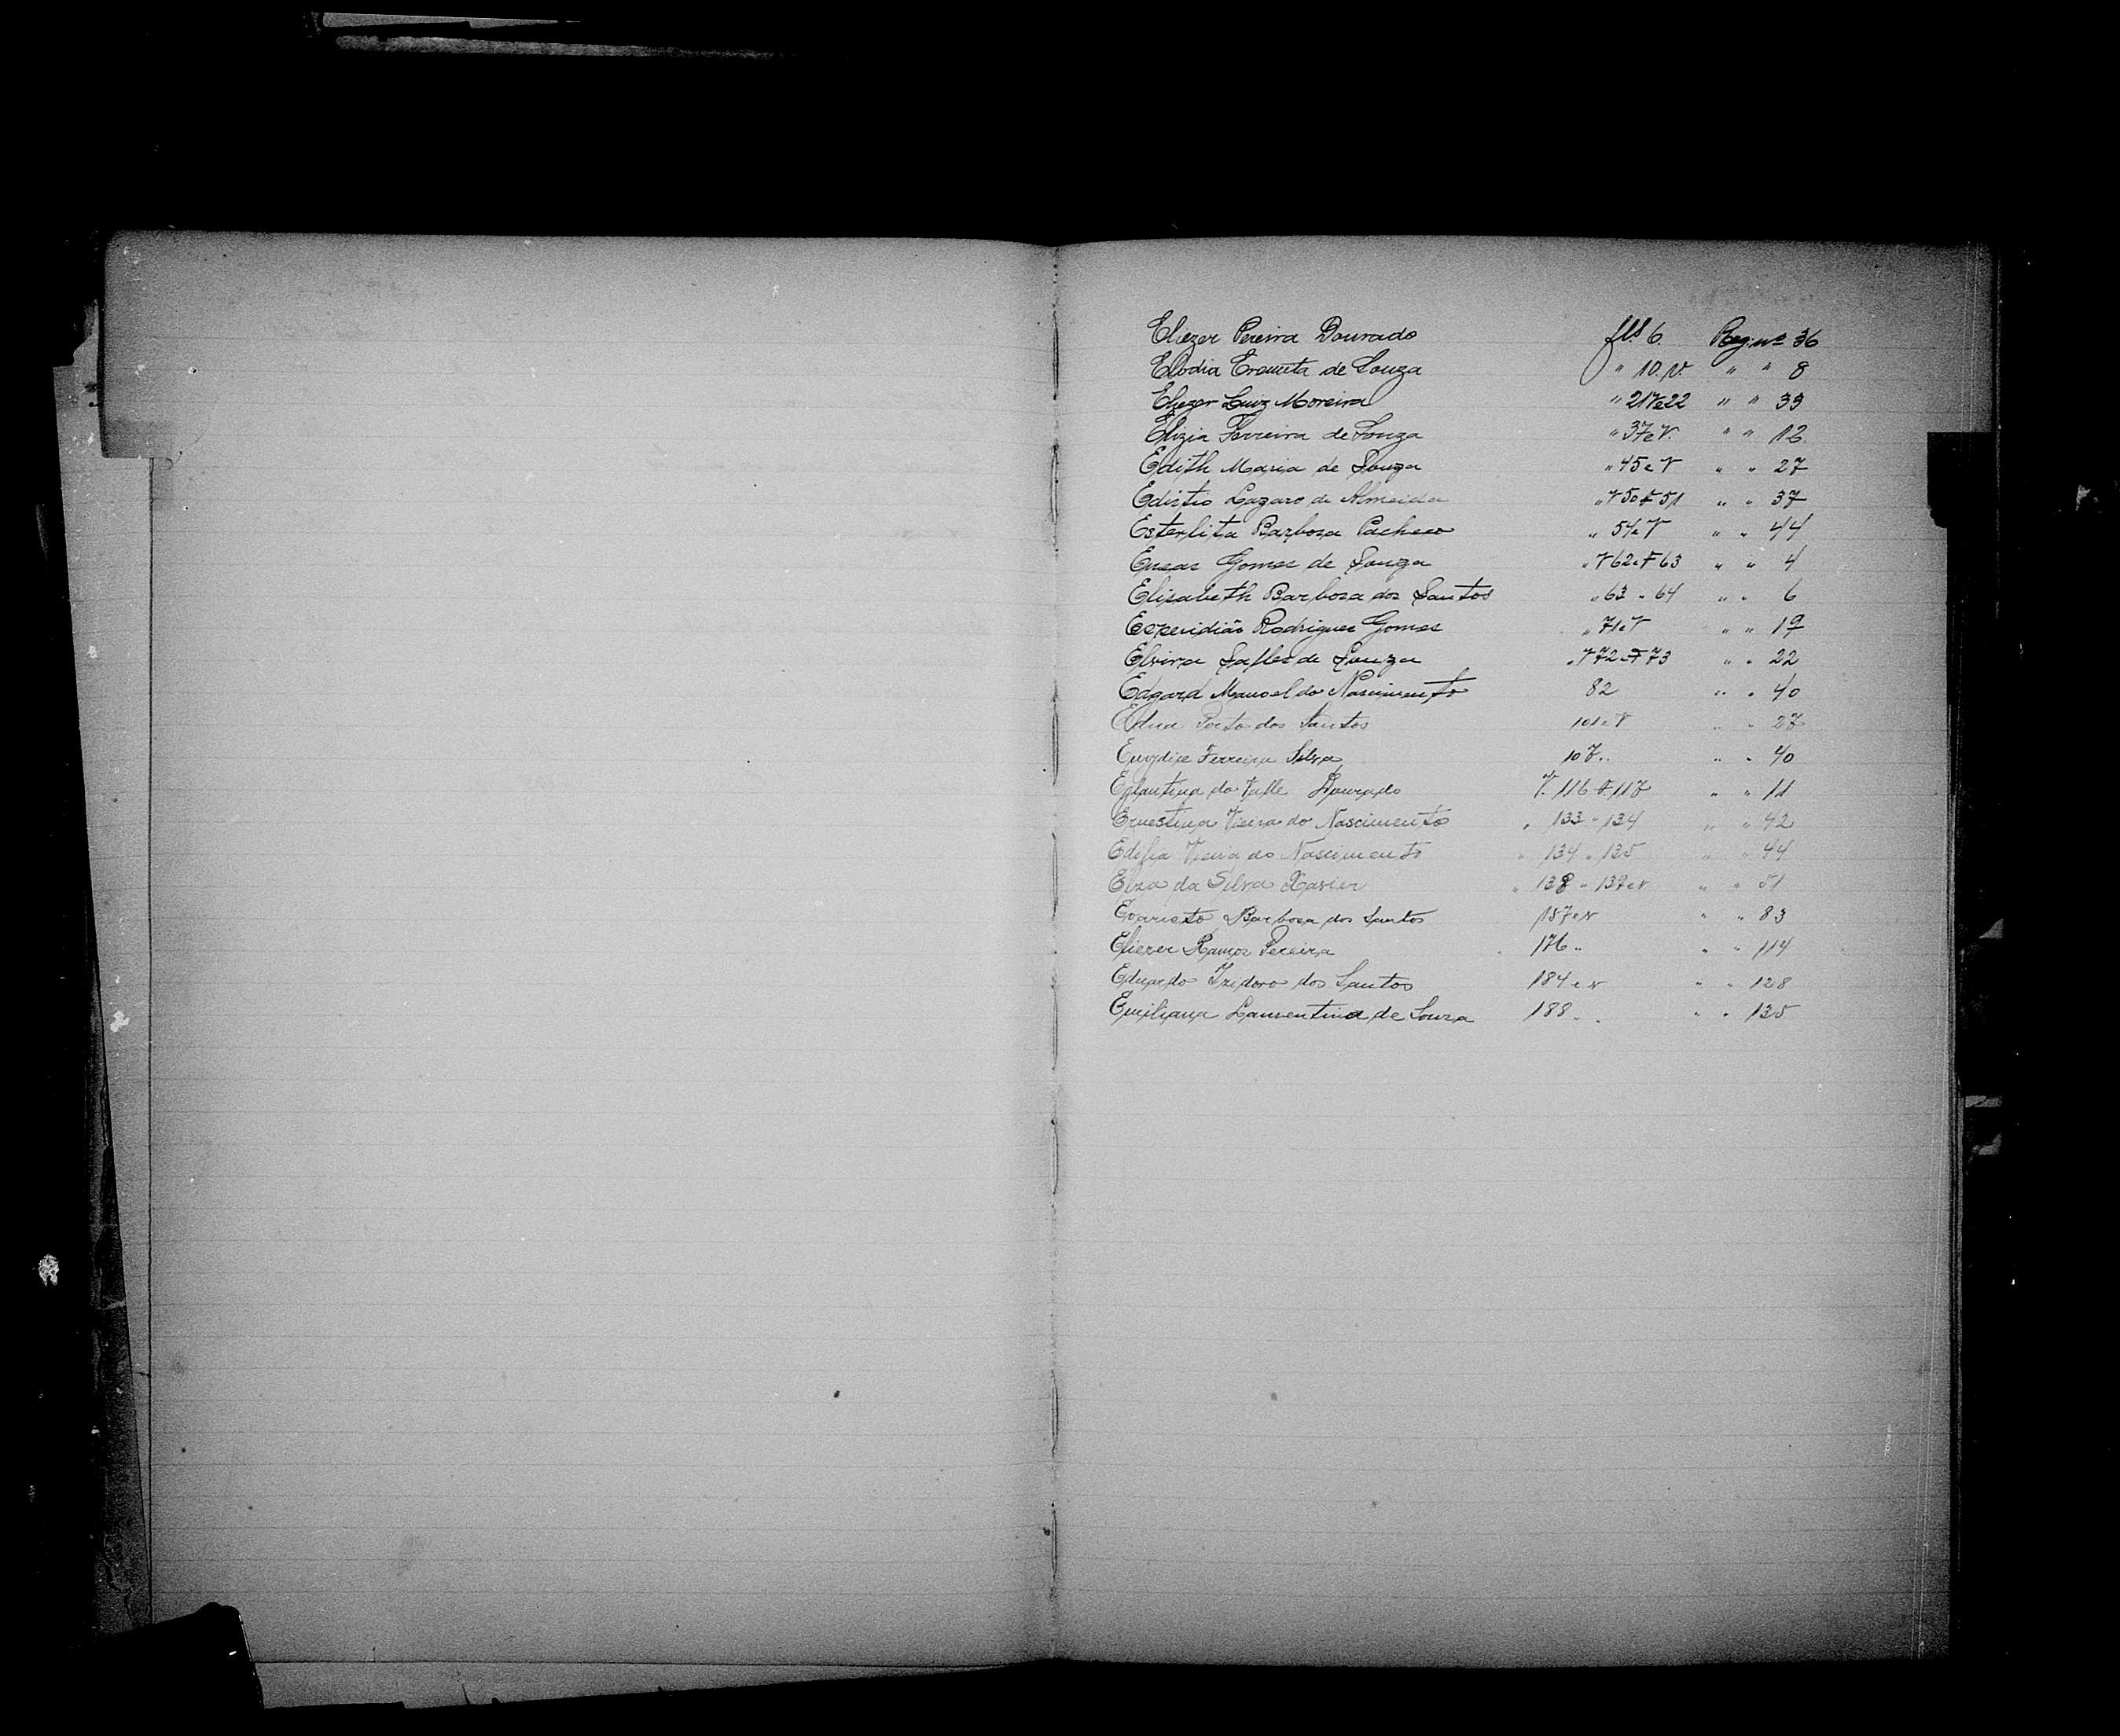 Eliezer Pereira Dourado fls 6. Reg. nº 36
Elodia Eramita de Souza " 10. V. " " 8
Eliezer Luiz Moreira " 21Ve22 " " 33
Elizia Ferreira de Souza " 37e V. " " 12.
Edith Maria de Souza " 45 e V " " 27
Edistio Lazaro de Almeida " V 50 F 51 " " 37
Esterlita Barbosa Pacheco " 54e V " " 44
Eneas Gomes de Souza " V 62 e F 63 " " 4
Elisabeth Barbosa dos Santos " 63 " 64 " " 6
Esperidião Rodrigues Gomes " 71e V " " 19
Elvira de Souza " V 72 e F 73 " " 22
Edgard Manoel do Nascimento 82 " " 40
Edna Porto dos Santos 101 e V " " 27
Euvydice Ferreira Silva 107 " " " 40
Eglantina do Valle Dourado V. 116 F. 117 " " 11
Ernestina Vieira do Nascimento " 133 " 134 " " 42
Edifia Vieira do Nascimento " 134 " 135 " " 44
Elza da Silva Xavier " 138 " 139 e v " " 51
Evaristo Barbosa dos Santos 157 e v " " 83
Eliezer Ramos Pereira 176 " " " 114
Eduardo Izidoro dos Santos 184 e v " " 128
Emiliana Laurentina de Souza 188 " " " 135